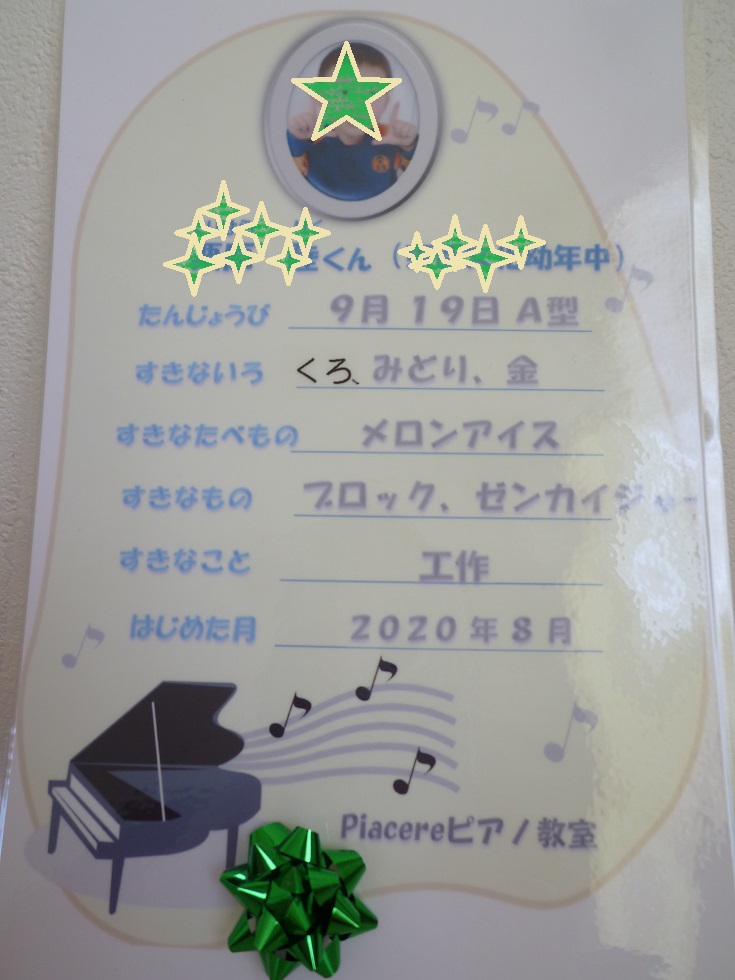 くん(
動年中)
たんじょうび 9月 19日 A型
すきないろ くろ、みどり、金
すきなたべもの メロンアイス
すきなもの ブロック、ゼンカイジャー
すきなこと 工作
はじめた月 2020年8月
Piacereピアノ教室